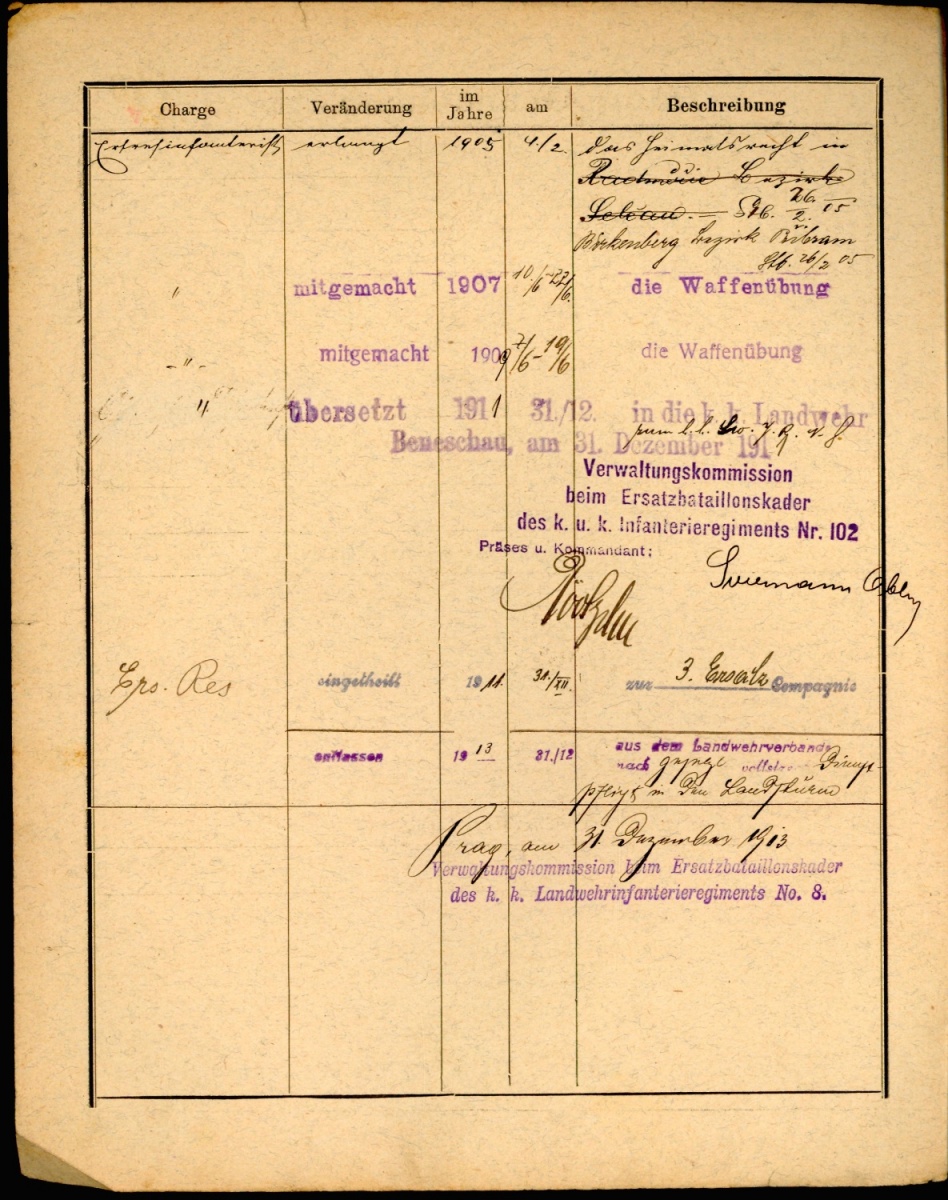 Charge Veränderung im Jahre am Beschreibung
Ersatzinfanterist erlangt 1905 4/2. das Heimatsrecht in
Bezirk
Selčan. Stb. 26./2. 05
Birkenberg bezirk Přibram
Stb. 26/2 05
" mitgemacht 1907 10./6-22/6. die Waffenübung
-"- mitgemacht 1909 7/6-19/6 die Waffenübung
" übersetzt 1911 31./12. in die k. k. Landwehr
zum k. k. J. R. 8.
Beneschau, am 31. Dezember 191
Verwaltungskommission
beim Ersatzbataillonskader
des k. u. k. Infanterieregiments Nr. 102
Präses u. Kommandant:
Ers. Res eingetheilt 1911. 31./XII. zur 3. Ersatz Compagnie
entlassen 1913 31./12 aus dem Landwehrverbande
nach gesetzl vollstr Dienst-
pflicht in den Landsturm
Prag, am 31. Dezember 1913
Verwaltungskommission beim Ersatzbataillonskader
des k. k. Landwehrinfanterieregiments No. 8.